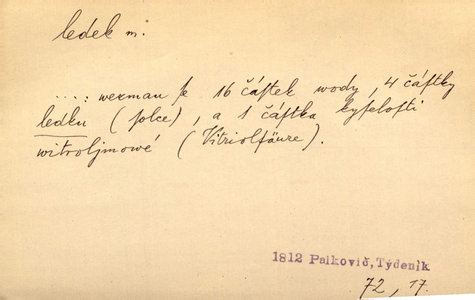 ledek m.
....: wezmau se 16 částek wody, 4 částky
ledku (solce), a 1 částka kyselosti
witroljmowé (Vitriolsäure).
1812 Palkovič, Týdeník
72, 17.